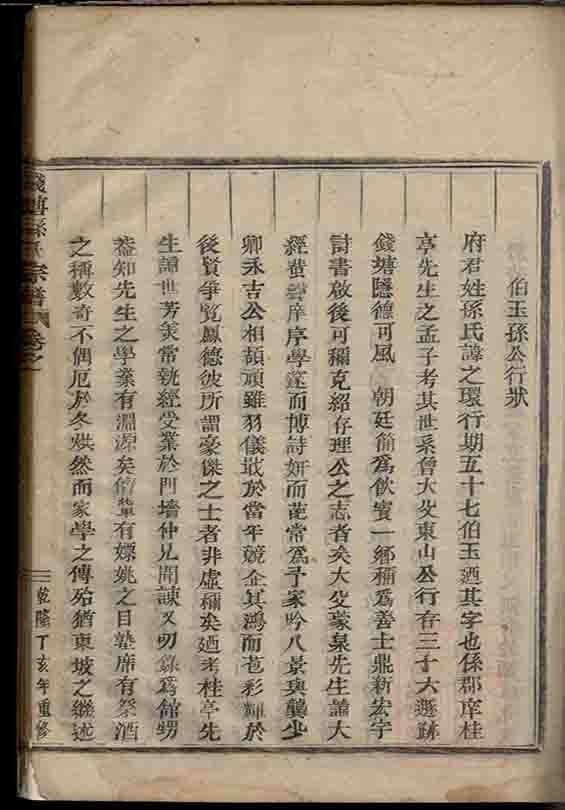 伯玉孫公行狀
府君姓孫氏諱之環行期五十七伯玉廼其字也係郡庠桂
亭先生之孟子考其世系曾大父東山公行存三十六遯跡
錢塘隱德可風 朝廷簡為飲賓一鄉稱為善士鼎新宏宇
詩書啟後可稱克紹存理公之志者矣大父蒙泉先生諱大
經蜚聲庠序學邃而博詩妍而葩常為予家吟八景與龔少
卿永吉公相頡頏雖羽儀戢於當年競企其鴻而苞彩輝於
後賢爭覽鳳德彼所謂豪傑之士者非虛稱矣廼考桂亭先
生諱世芳芙常執經受業於門墻仲兄開諫又叨錄為館甥
葢知先生之學業有淵源矣儕輩有嫖姚之目塾席有祭酒
之稱數奇不偶厄於冬烘然而家學之傳殆猶東坡之繼述
錢塘孫氏宗譜 卷之一
乾隆丁亥年重修